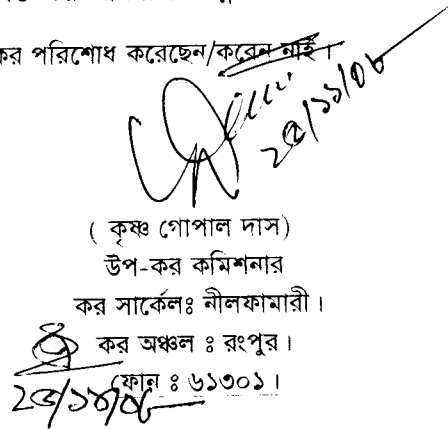 কর পরিশোধ করেছেন/করেন নাই।
( কৃষ্ণ গোপাল দাস)
উপ-কর কমিশনার
কর সার্কেলঃ নীলফামারী।
কর অঞ্চল ঃ রংপুর।
ফোন ঃ ৬১৩০১।